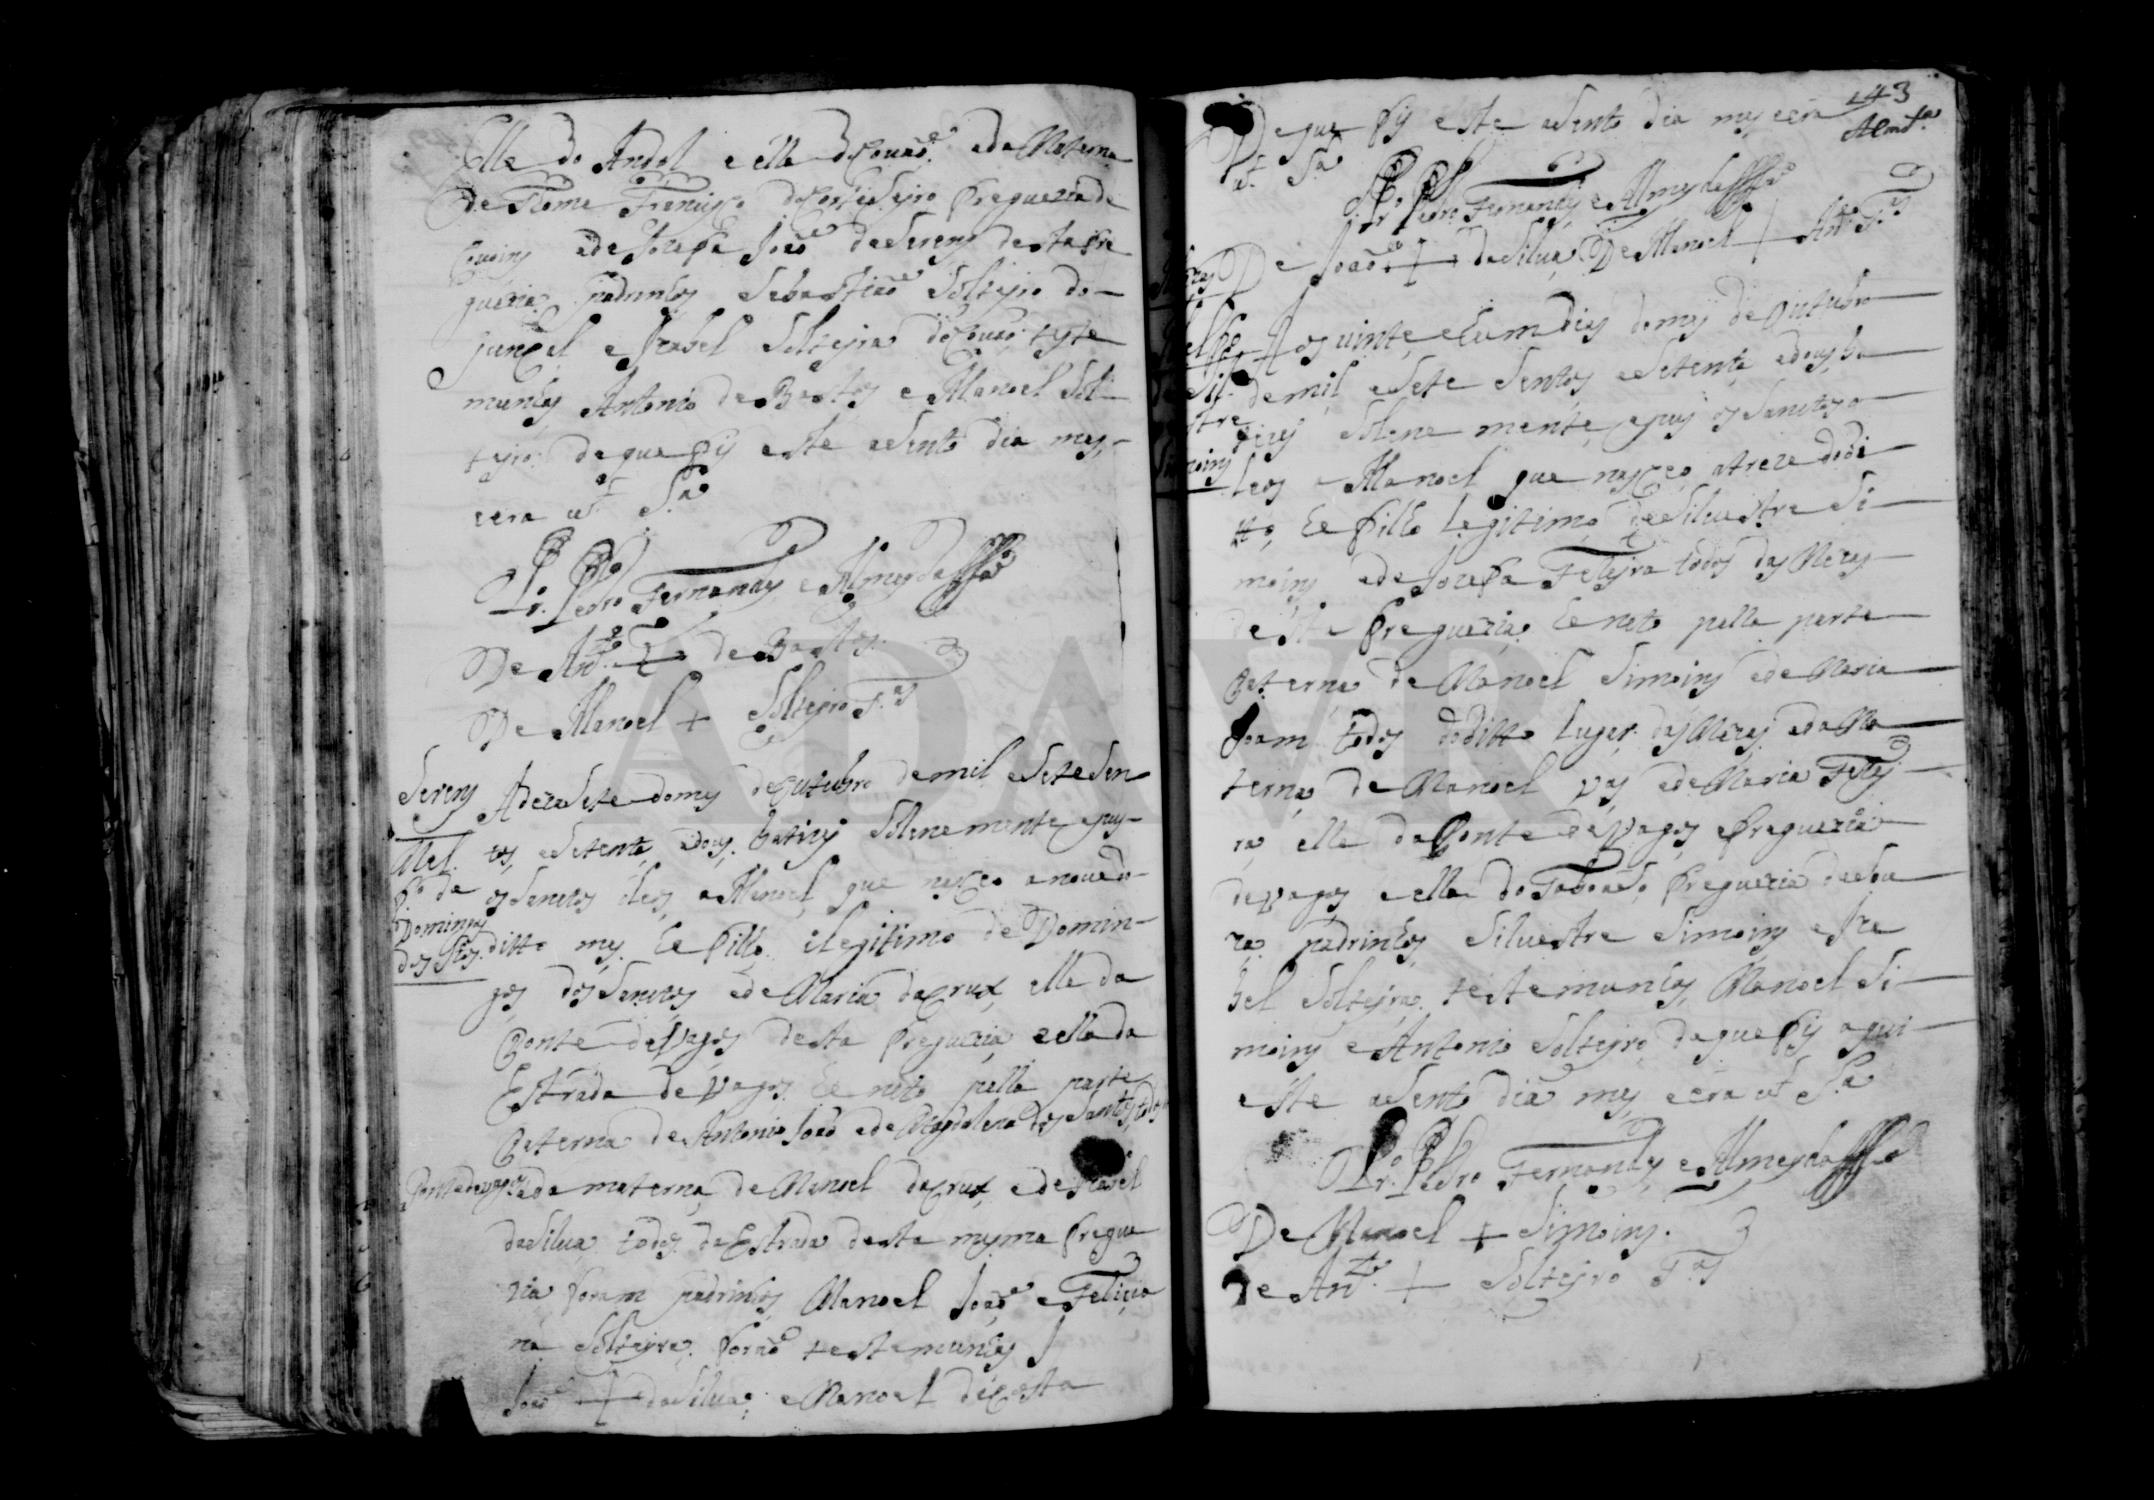 Elle do Andal e ella do Couaõ. e da Materna
de Thome Francisco do Corticeyro freguezia de
e de Jozefa Joaõ de Serens desta fre
guezia. padrinhos Sebastiaõ Solteyro do
Junçal e Izabel Solteyra do Couaõ, teste
munhas, Antonio de Bastos e Manoel Sol-
teyro: de que fis este asento dia mes,
e era ut S.ª
P.r Pedro Fernandes e Almeyda
De Ant.º + de Bastos.
De Manoel + Solteyro T.as
Serens
M.el
f.º de
Domingos
dos S.tos
A dezasete do mes de outubro de mil e Sete Sen
tos, e Setenta, e dous, batizei Solenemente e pus
os Santos oleos, a Manoel, que nasceo a noue do
ditto mes. he filho ilegitimo de Domin-
gos dos Santos e de Maria da Crux, elle da
Ponte de Vagos desta freguezia, e ella da
Estrada de Vagos. he neto pella parte
Paterna de Antonio Joaõ e de Magdalena dos Santos, todos
da Ponte de Vagos e da materna, de Manoel da Crux, e de Izabel
da Silua todos da Estrada desta mesma fregue
zia foram padrinhos, Manoel Joaõ e Felicia
na Solteyra. foraõ testemunhas J
Joaõ + da Silua, e Manoel da Costa
143
Almd.ª
De que fis este asento dia mes e era
ut S.ª
P.r Pedro Fernandes e Almeyda
De Joaõ + da Silua, De Manoel + T.as
Mezes
Aos uinte e hum dias do mes de Outubro
de mil e Sete Sentos e Setenta e dous, ba
tizei Solene mente, e pus os Santos o
leos a Manoel que nasceo, a treze do di
tto, he filho Legitimo de Siluestre Si
moins e de Jozefa Feteyra todos das Mezas
desta freguezia. he neto pella parte
Paterna de Manoel Simoins e de Maria
Joam todos do ditto Lugar das Mezas, e da Ma
terna, de Manoel Vas e de Maria Fetey
ra, elle da Ponte de Vagos freguezia
de Vagos e ella do Taboado, freguezia de Sou
za. padrinhos, Siluestre Simoins e Iza
bel Solteyra. testemunhas, Manoel Si
moins e Antonio Solteyro, de que fis aqui
este asento dia mes, e era ut S.ª
P.r Pedro Fernandes e Almeyda
De Manoel + Simoins.
De Ant.º + Solteyro T.as
ADAVR